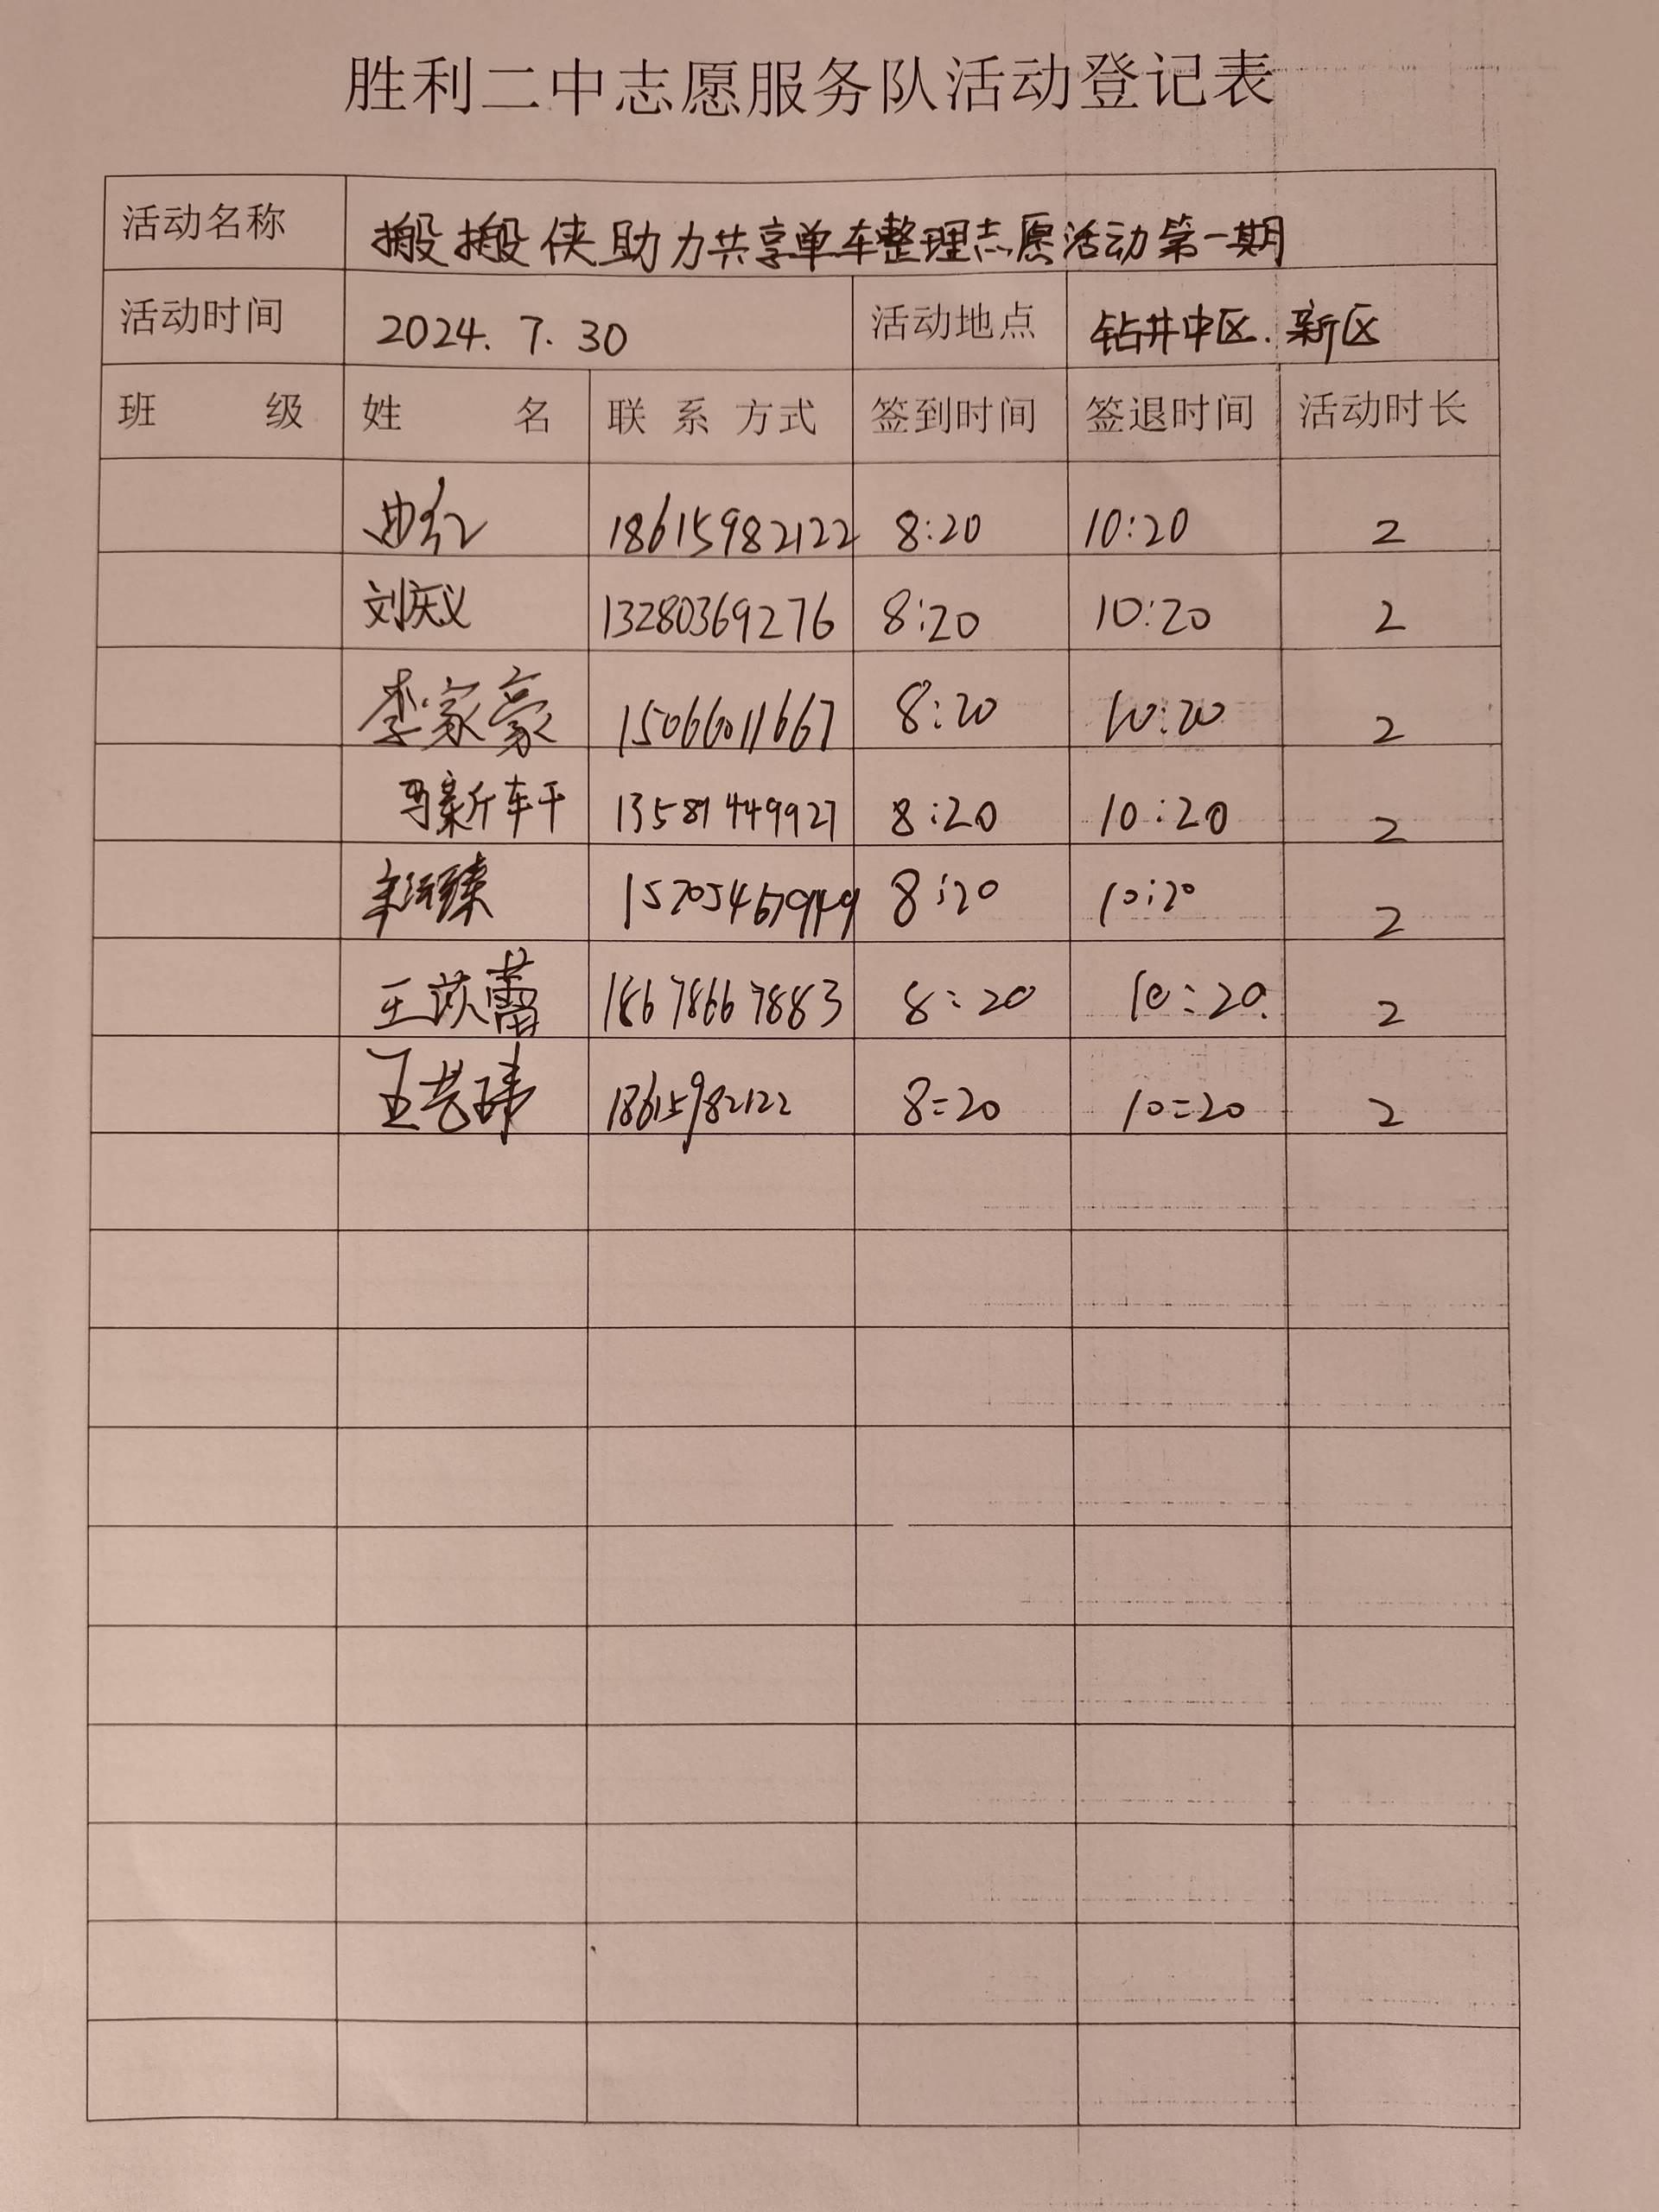 胜利二中志愿服务队活动登记表
活动名称 搬搬侠助力共享单车整理志愿活动第一期
活动时间 2024.7.30 活动地点 钻井中区.新区
班 级 姓 名 联 系 方式 签到时间 签退时间 活动时长
曲红 18615982122 8:20 10:20 2
刘庆义 13280369276 8:20 10:20 2
李家豪 15066011667 8:20 10:20 2
马新轩 8:20 10:20 2
8:20 10:20 2
王苡蕾 18678667883 8:20 10:20. 2
王艺玮 18615982122 8:20 10:20 2